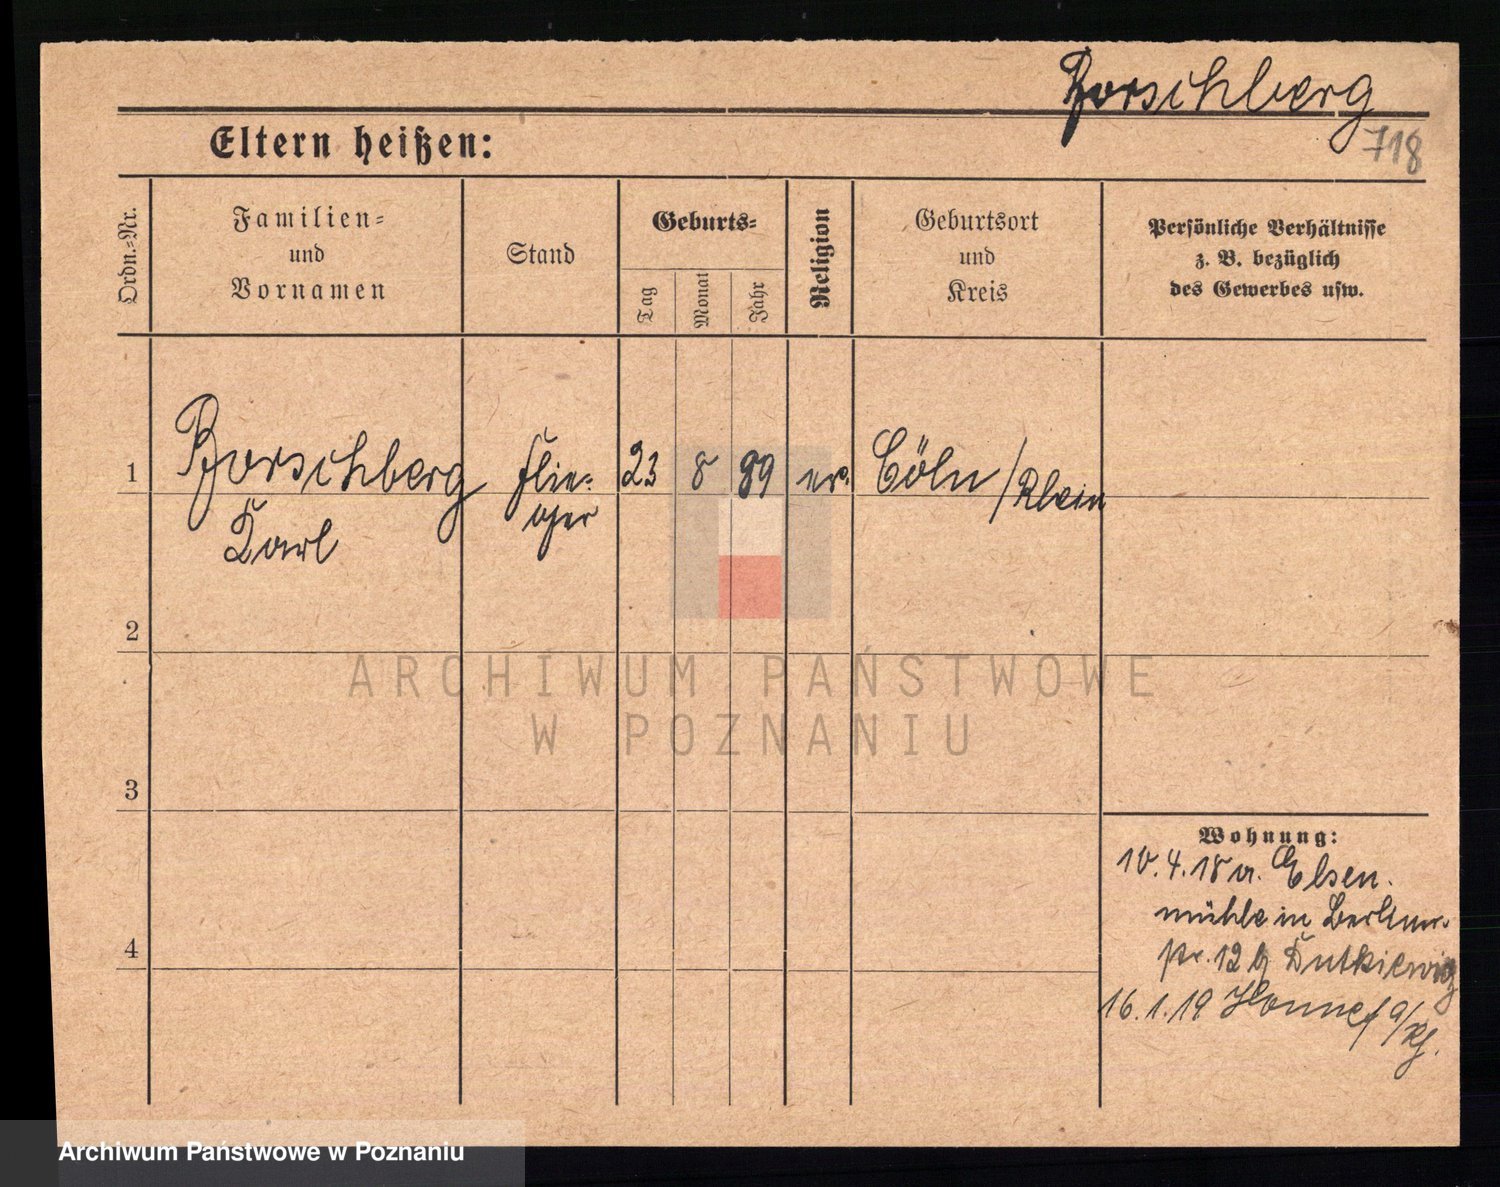 Borschberg
718
Eltern heißen:
Ordn.-Nr.
Familien-
und
Vornamen
Stand
Geburts-
Tag
Monat
Jahr
Religion
Geburtsort
und
Kreis
Persönliche Verhältnisse
z. B. bezüglich
des Gewerbes usw.
1
Borschberg
Karl
Flie-
ger
23
8
89
ev.
Cöln /Rhein
2
3
4
Wohnung:
10.4.18 v. Elsen
mühle in Berliner-
str. 12 b Dutkiewicz
16.1.19 Honnef a/Rh.
ARCHIWUM PAŃSTWOWE
W POZNANIU
Archiwum Państwowe w Poznaniu